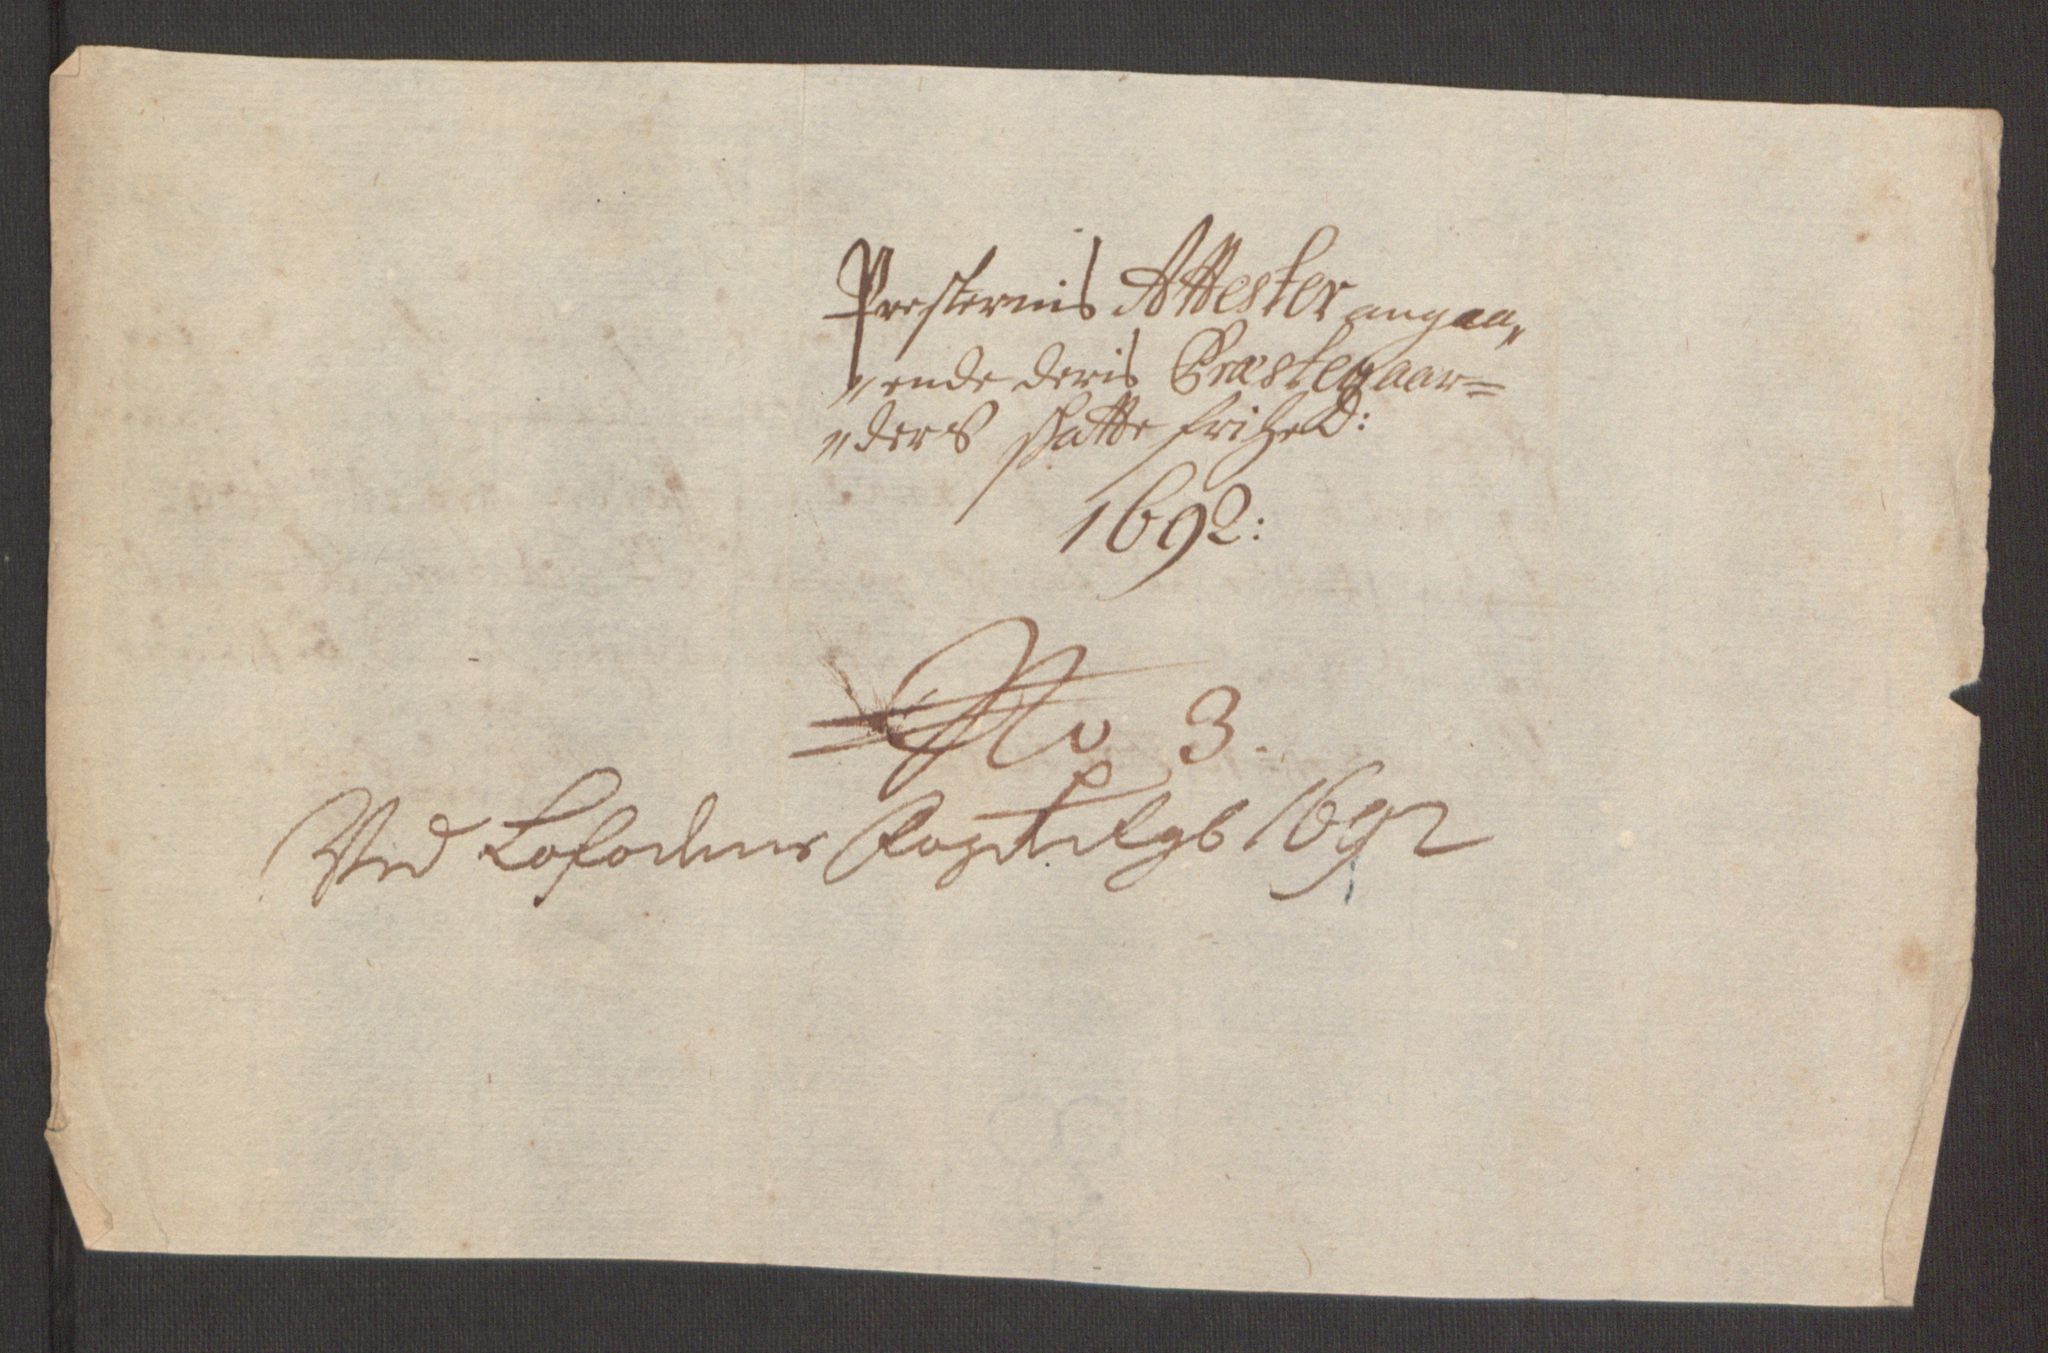 Presternis Attester angaa„
„ende deris Præstegaar=
„ders schatte frihed:
1692:
No 3.
Ved Lofodens Fogd Rgb 1692